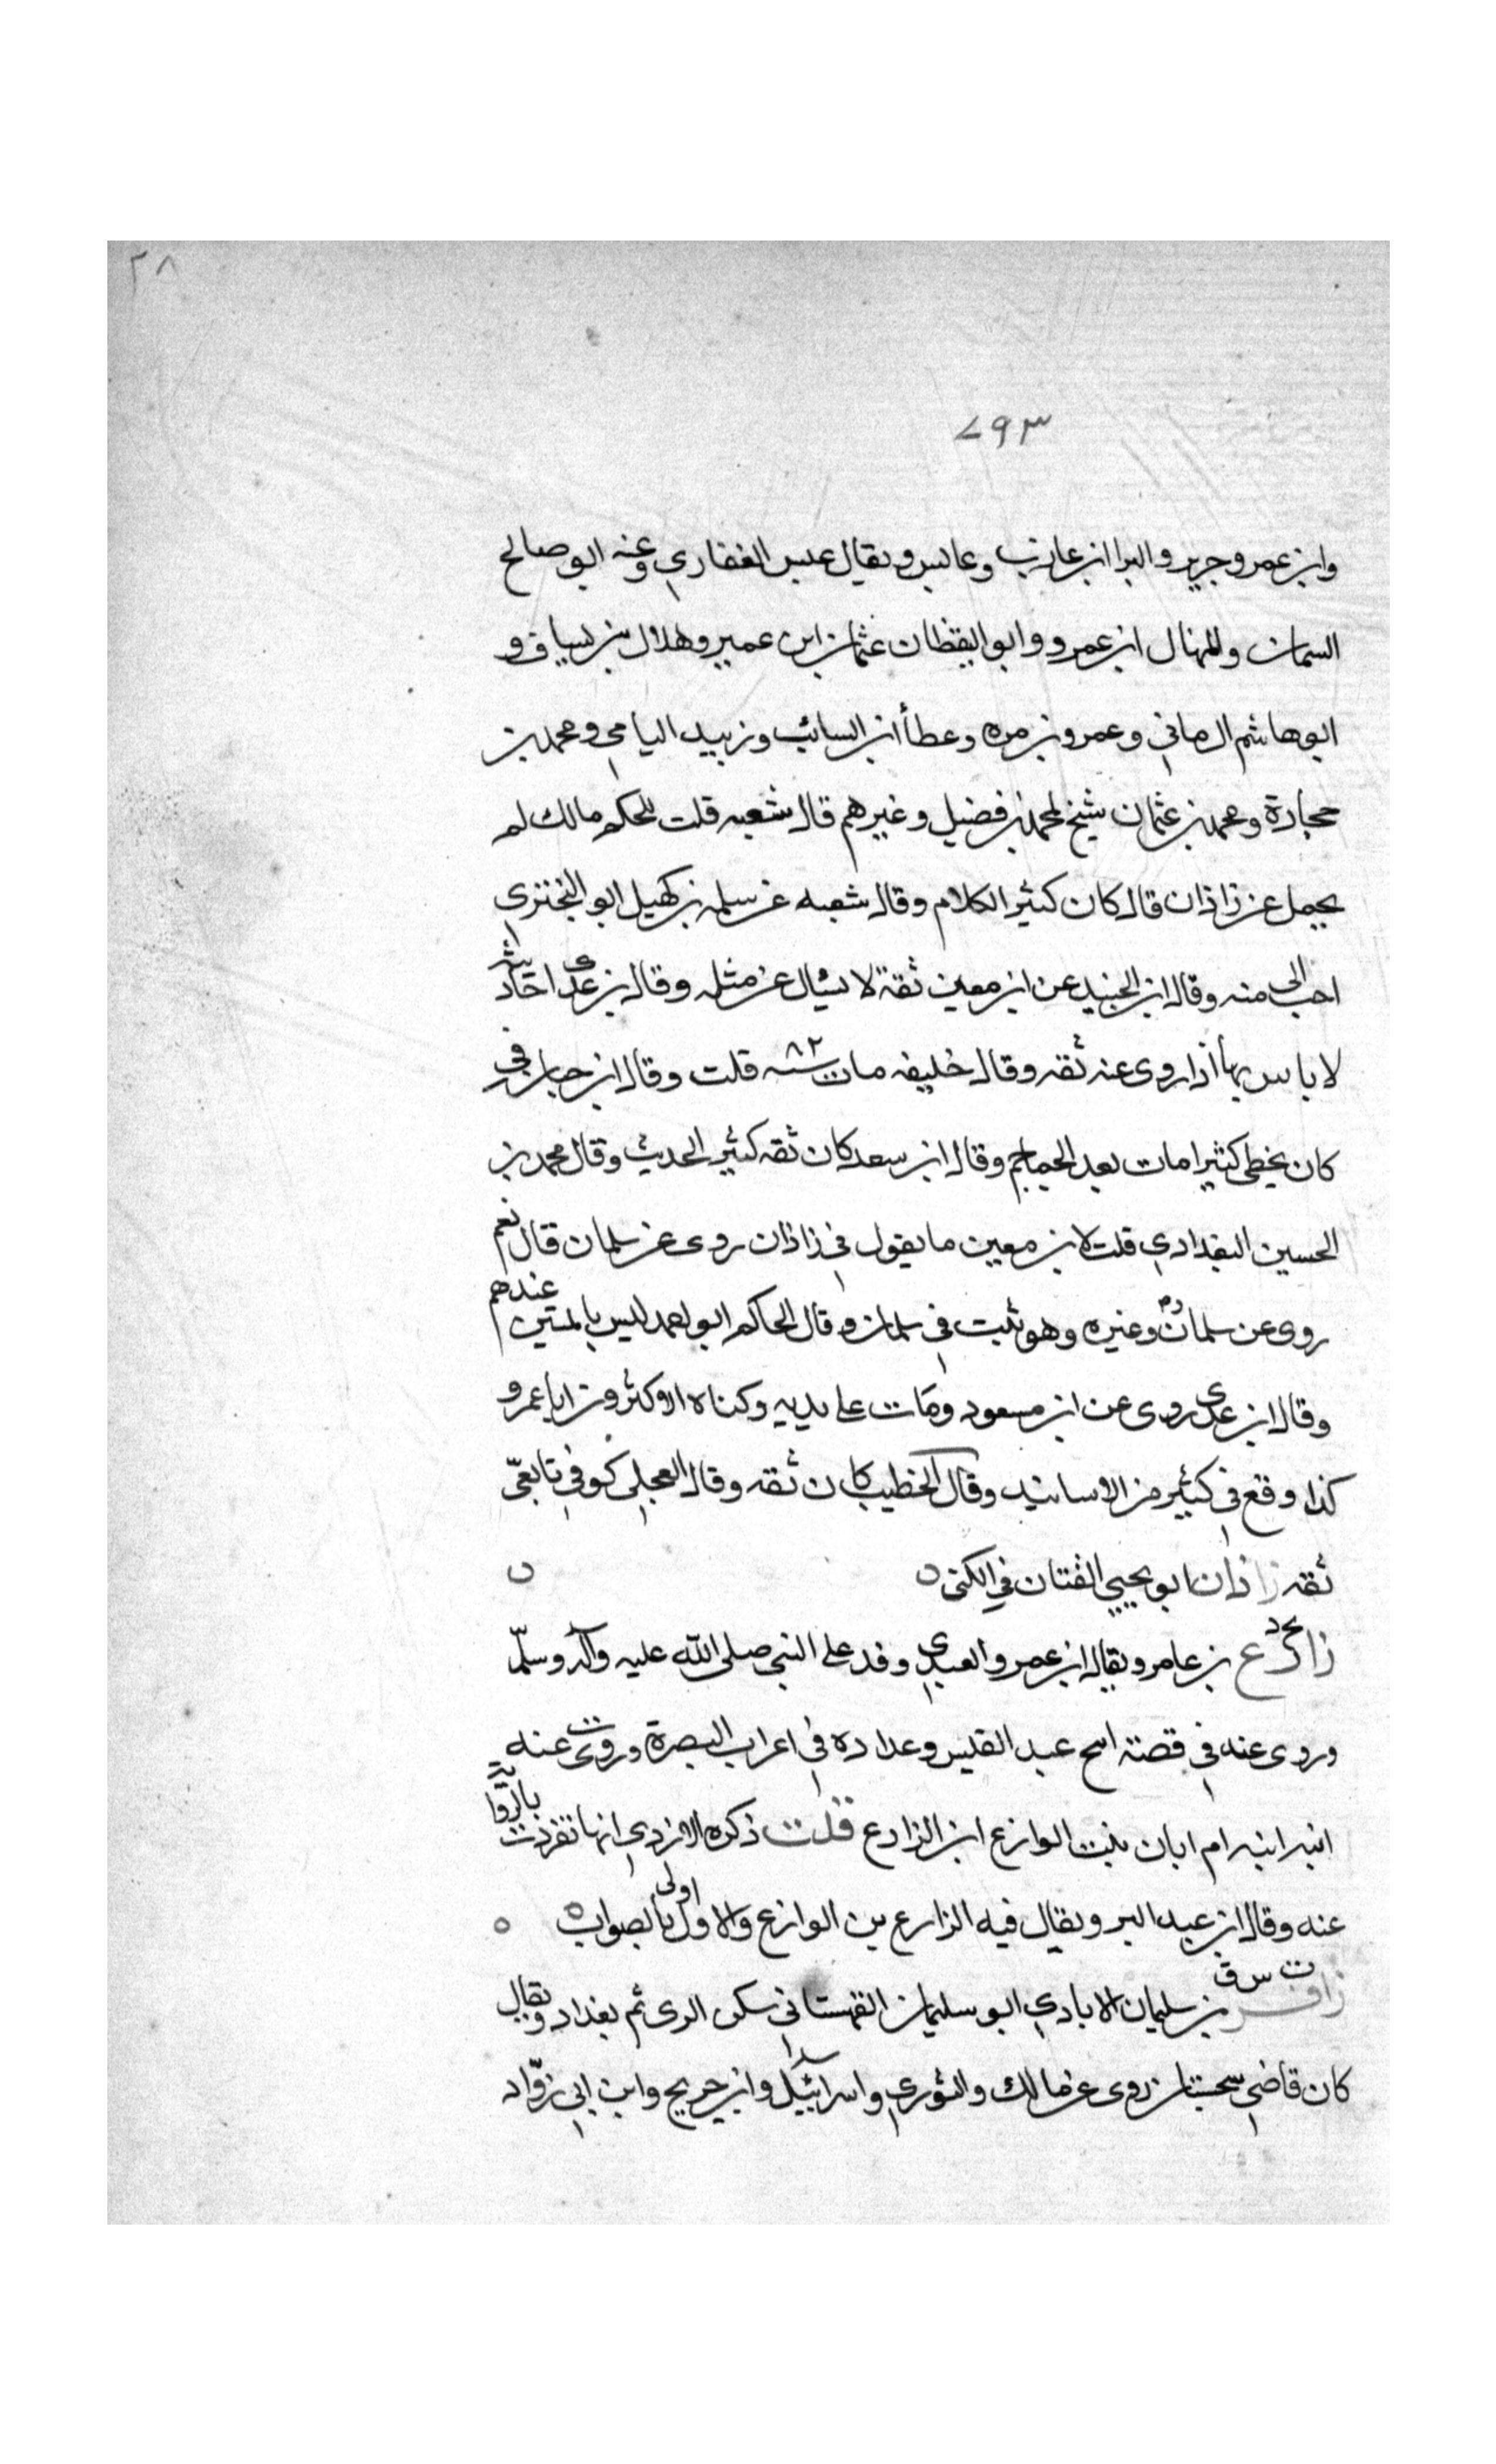 ٢٨
٧٩٣
وابن عمر وجرير والبرا ابن عازب وعابس ويقال عبس الغفاري وعنه ابو صالح
السمان والمنهال ابن عمرو وابو اليقظان عثمان ابن عمير وهلال بن يساف و
ابو هاشم الرماني وعمرو بن مره وعطأ ابن السائب وزبيد اليامي ومحمد بن
حجادة ومحمد بن عثمان شيخ لمحمد بن فضيل وغيرهم قال شعبه قلت للحكم مالك لم
يحمل عن زاذان قال كان كثير الكلام وقال شعبه عن سلمه بن كهيل ابو البختري
احب الى منه وقال ابن الجنيد عن ابن معين ثقة لا يسٔال عن مثله وقال بن عدى احاديثه
لا باس بها اذا روى عنه ثقه وقال خليفه مات سنه ٨٢ قلت وقال ابن حبان في
كان يخطى كثيرا مات بعد الجماجم وقال ابن سعد كان ثقه كثير الحديث وقال محمد بن
الحسين البغدادي قلت لابن معين ما يقول في زاذان روى عن سلمان قال نعم
روى عن سلمان وغيره وهو ثبت في سلمان وقال الحاكم ابو احمد ليس بالمتين عندهم
وقال ابن عدى روى عن ابن مسعود ومات على يديه وكناه الاوكثرون ابا عمرو
كذا وقع في كثير من الاسانيد وقال الخطيب كان ثقه وقال العجلي كوفي تابعيّ
ثقه زاذان ابو يحيي القتات في الكنى ه
زارع بخ د بن عامر ويقال ابن عمرو العبدي وفد على النبي صلى الله عليه وآله وسلّم
وروى عنه في قصته اسح عبد القيس وعداده في اعراب البصرة وروت عنه
ابنه ابنه ام ابان بنت الوازع ابن الزارع قلت ذكره الازدي انها تفردت بالرواية
عنه وقال ابن عبد البر ويقال فيه الزارع بن الوازع والاول اولى بالصواب ه
زافر ت س ق بن سليمان الايادي ابو سليمان القهستاني سكن الرى ثم بغداد ويقال
كان قاضي سجستان روى عن مالك والثوري واسرائيل وابن جريج وابن ابي روّاد